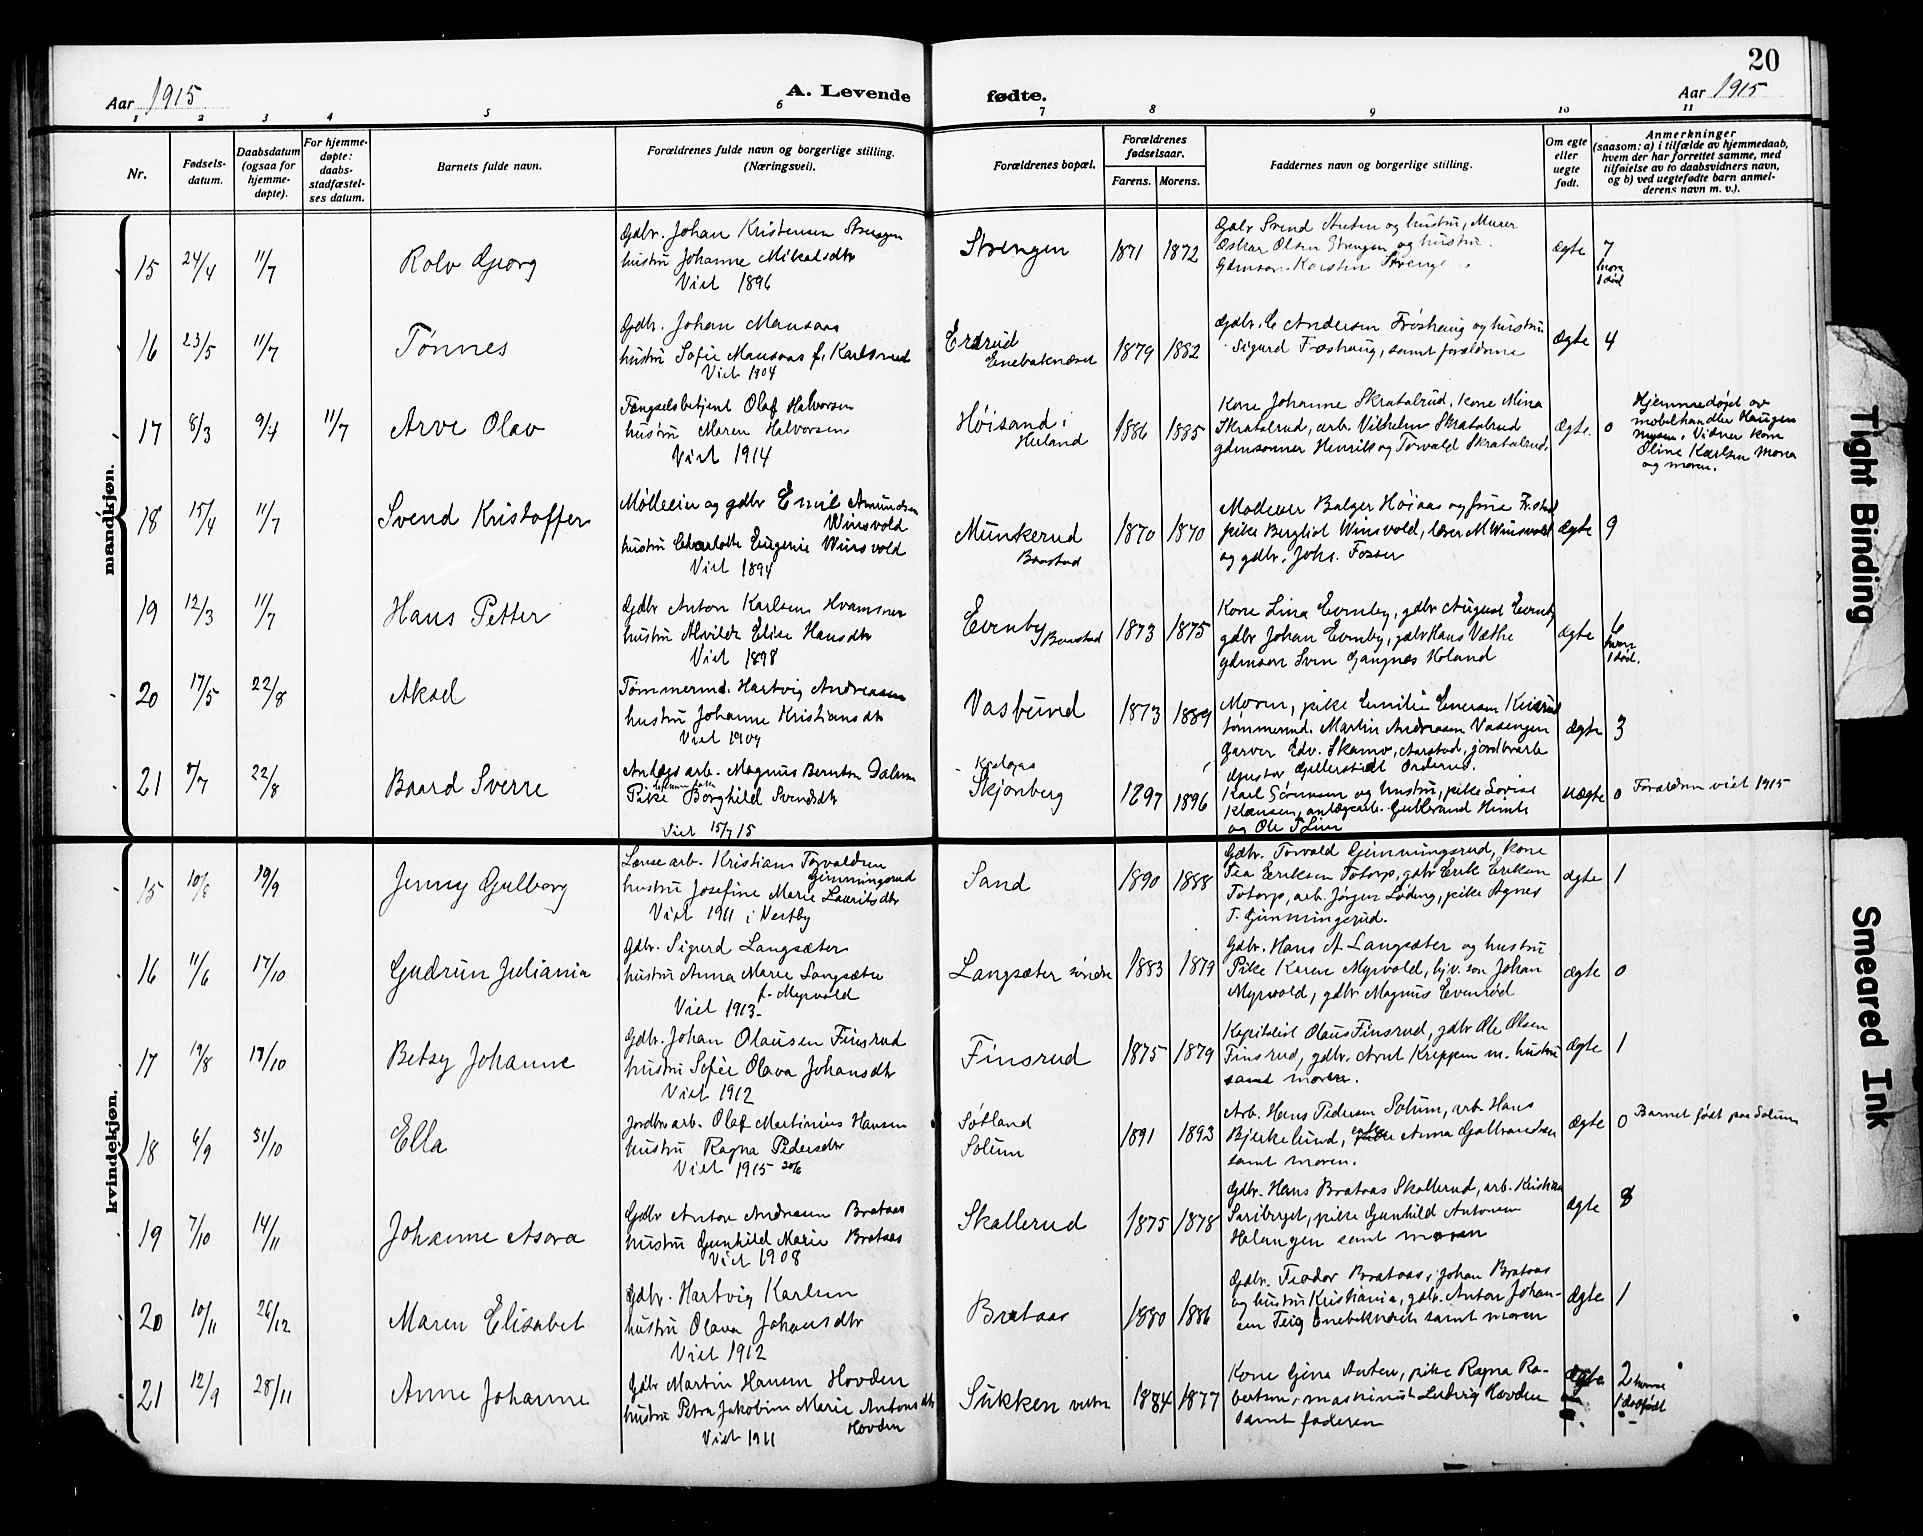 20
Aar 1915
A. Levende fødte.
Aar 1915
1 2 3 4 5 6 7 8 9 10 11
Nr.
Fødsels-
datum.
Daabsdatum
(ogsaa for
hjemme-
døpte).
For hjemme-
døpte:
daabs-
stadfæstel-
ses datum.
Barnets fulde navn.
Forældrenes fulde navn og borgerlige stilling.
(Næringsvei).
Forældrenes bopæl.
Forældrenes
fødselsaar.
Farens. Morens.
Faddernes navn og borgerlige stilling.
Om egte
eller
uegte
født.
Anmerkninger
(saasom: a) i tilfælde av hjemmedaab,
hvem der har forrettet samme, med
tilføielse av to daabsvidners navn,
og b) ved uegtefødte barn anmel-
derens navn m. v.).
mandkjøn.
15 24/4 11/7
Rolv Georg
Gdbr. Johan Kristensen Strengen
hustru Johanne
Viet 1896
Strengen
1871 1872
Gdbr Svend og hustru, Murer
Oskar Olsen Strengen og hustru.
Gdmsøn Karsten
ægte
7
hvorav
1 død
16 23/5 11/7
Tønnes
Gdbr. Johan Mansaas
hustru Sofie Mansaas f. Karlsrud
Viet 1904
Erdrud
Enebaknæset
1879 1882
Gdbr. C Andersen Frøshaug og hustru
Sigurd Frøshaug, samt forældrene
ægte
4
17 8/3 9/4 11/7
Arve Olav
Fængselsbetjent Olaf Halvorsen
hustru Maren Halvorsen
Viet 1914
Høisand i
1886 1885
Kone Johanne Skratalrud, kone Mina
Skratalrud, arb. Vilhelm Skratalrud
gdmsønner Henrik og Torvald Skratalrud.
ægte.
0
Hjemmedøpt av
møbelhandler Haugen
Mysen. Vidner kone
Oline Karlsen Mona
og moren.
18 15/4 11/7
Svend Kristoffer
Mølleeier og gdbr Emil Amundsen
Winsvold
hustru Charlotte Eugenie Winsvold
Viet 1894
Munkerud
Baastad
1870 1870
Mølleeier Balzer Høiaas og frue
pike Bergliot Winsvold, lærer M Winsvold
og gdbr. Johs. Fosser
ægte
9
19 12/3 11/7
Hans Petter
Gdbr Anton Karlsen Kvamsner
hustru Alvilde Elise Hansdtr
Viet 1898
Evenby
Baastad
1873 1875
Kone Lina Evenby, gdbr August Evenby
gdbr Johan Evenby, gdbr Hans Væthe
gdmsøn Sven Gangnæs
ægte
6
hvorav
1 død.
20 17/5 22/8
Aksel
Tømmermd. Hartvig Andreasen
hustru Johanne Kristiansdtr
Viet 1909
Vasbund
1873 1889
Moren, pike Emilie Enersen
tømmermd. Martin Andreasen Vasengen
Garver Edv. Skamo, Aarstad, jordbrarb
Gustav
ægte
3
21 7/7 22/8
Baard Sverre
Anlægsarb. Magnus Berntsen Dalum
Pike Borghild Svendsdtr
Viet 15/7 15
Skjønberg
1897 1896
Karl Sørensen og hustru, pike Lovise
Klausen, anlægsarb. Gulbrand
og Ole
uægte
0
Forældrene viet 1915
kvindekjøn.
15 10/8 19/9
Jenny Gulborg
Lænsearb. Kristian Torvaldsen
Gimmingsrud
hustru Josefine Marie Lauritsdtr
Viet 1911 i Vestby
Sand
1890 1888
Gdbr. Torvald Gimmingsrud, kone
Tea Eriksen Totorp, gdbr Erik Eriksen
Totorp, arb. Jørgen Løding, pike Agnes
T. Gimmingsrud.
ægte
1
16 11/6 17/10
Gudrun Juliania
Gdbr. Sigurd Langsæter
hustru Anna Marie Langsæter
f. Myrvold
Viet 1913
Langsæter søndre
1883 1879
Gdbr. Hans A. Langsæter og hustru
Pike Karen Myrvold, hjv. søn Johan
Myrvold, gdbr Magnus Evenrød
ægte
0
17 19/8 17/10
Betsy Johanne
Gdbr. Johan Olausen Finsrud
hustru Sofie Olava Johansdtr
Viet 1912
Finsrud
1875 1879
Kapitalist Olaus Finsrud, gdbr Ole Olsen
Finsrud, gdbr. Arnt Kreppen m. hustru
samt moren.
ægte
1
18 6/9 31/10
Ella
Jordbrarb. Olaf Martinius Hansen
hustru Ragna Pedersdtr
Viet 1915 20/6
Søtland
Solum
1891 1893
Arb. Hans Pedersen Solum, arb. Hans
Bjerkelund, enke Anna Gulbrandsen
samt moren.
ægte
0
Barnet født paa Solum
19 7/10 14/11
Johanne Asora
Gdbr Anton Andreasen Brataas
hustru Gunhild Marie Brataas
Viet 1908
Skallerud
1875 1878
Gdbr. Hans Brataas Skallerud, arb. Kristian
pike Gunhild Antonsen
Holangen samt moren
ægte
8
20 10/11 26/12
Maren Elisabet
Gdbr. Hartvig Karlsen
hustru Olava Johansdtr
Viet 1912
Brataas
1880 1886
Gdbr. Teodor Brataas, Johan Brataas
og hustru Kristiania, gdbr. Anton Johan-
sen Teig Enebaknæset samt moren
ægte
1
21 12/9 28/11
Anne Johanne
Gdbr Martin Hansen Hovden
hustru Petra Jakobine Marie Antonsdtr
Hovden
Viet 1911
Sukken vestre
1884 1877
Kone Gina Antsen, pike Ragna Ro-
bertsen, maskinist Ludvig Hovden
samt faderen
ægte
2 hvorav
1 dødfødt
Tight Binding
Smeared Ink